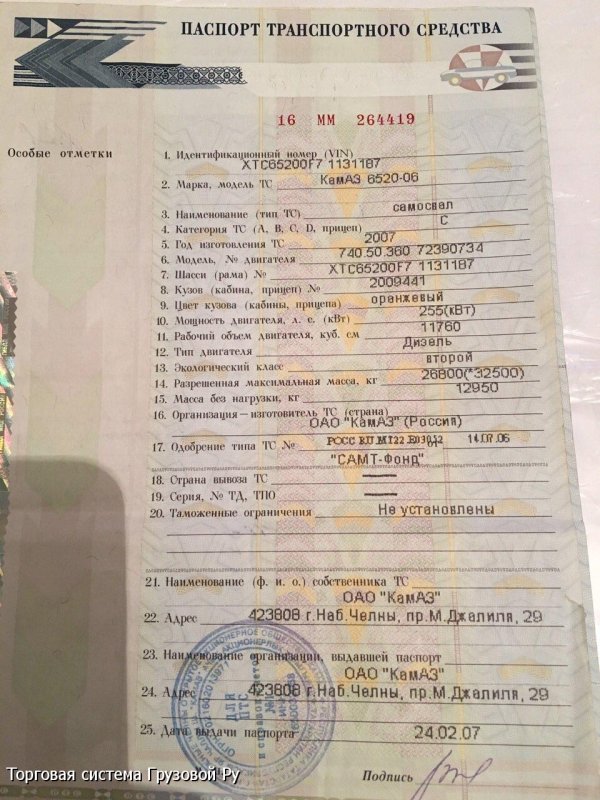 ПАСПОРТ ТРАНСПОРТНОГО СРЕДСТВА
16 ММ 264419
Особые отметки
1. Идентификационный номер (VIN)
XTC65200F7 1131187
2. Марка, модель ТС КамАЗ 6520-06
3. Наименование (тип ТС) самосвал
4. Категория ТС (A, B, C, D, прицеп) C
5. Год изготовления ТС 2007
6. Модель, № двигателя 740.50.360 72390734
7. Шасси (рама) № XTC65200F7 1131187
8. Кузов (кабина, прицеп) № 2009441
9. Цвет кузова (кабины, прицепа) оранжевый
10. Мощность двигателя, л. с. (кВт) 255(кВт)
11. Рабочий объем двигателя, куб. см 11760
12. Тип двигателя Дизель
13. Экологический класс второй
14. Разрешенная максимальная масса, кг 26800(*32500)
15. Масса без нагрузки, кг 12950
16. Организация—изготовитель ТС (страна)
ОАО "КамАЗ" (Россия)
17. Одобрение типа ТС № РОСС RU.МТ22.Е03032 от 14.07.06
"САМТ-Фонд"
18. Страна вывоза ТС —
19. Серия, № ТД, ТПО —
20. Таможенные ограничения Не установлены
21. Наименование (ф. и. о.) собственника ТС
ОАО "КамАЗ"
22. Адрес 423808 г.Наб.Челны, пр.М.Джалиля, 29
23. Наименование организации, выдавшей паспорт
ОАО "КамАЗ"
24. Адрес 423808 г.Наб.Челны, пр.М.Джалиля, 29
ДЛЯ
ПТС
25. Дата выдачи паспорта 24.02.07
Подпись
Торговая система Грузовой Ру